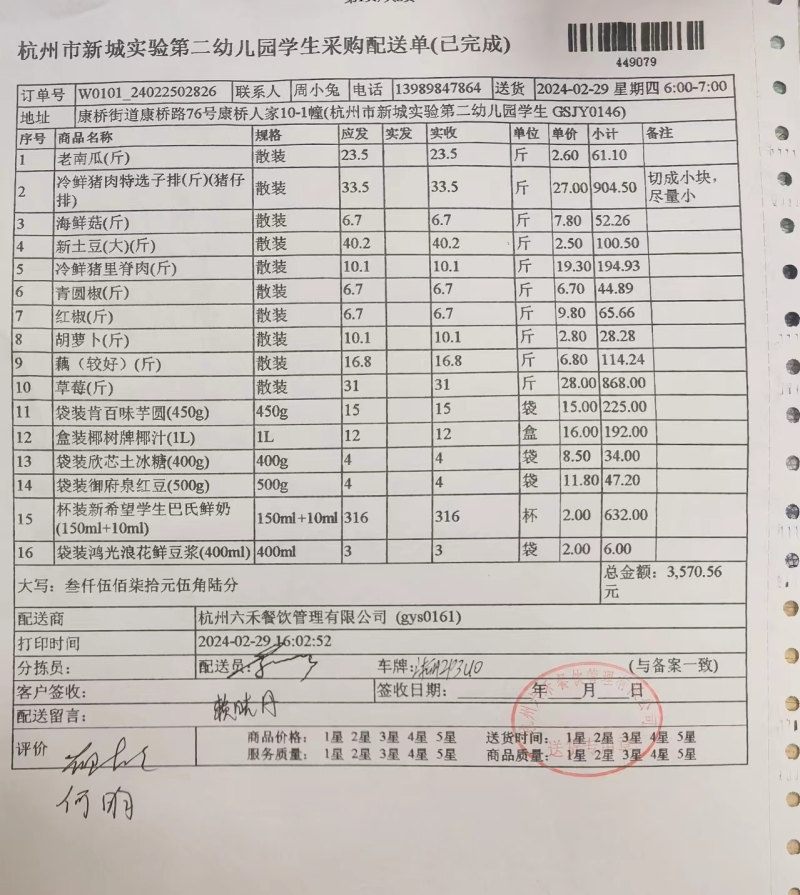 杭州市新城实验第二幼儿园学生采购配送单(已完成)
449079
订单号 W0101_24022502826 联系人 周小兔 电话 13989847864 送货 2024-02-29 星期四 6:00-7:00
地址 康桥街道康桥路76号康桥人家10-1幢(杭州市新城实验第二幼儿园学生 GSJY0146)
序号 商品名称 规格 应发 实发 实收 单位 单价 小计 备注
1 老南瓜(斤) 散装 23.5 23.5 斤 2.60 61.10
2 冷鲜猪肉特选子排(斤)(猪仔排) 散装 33.5 33.5 斤 27.00 904.50 切成小块，尽量小
3 海鲜菇(斤) 散装 6.7 6.7 斤 7.80 52.26
4 新土豆(大)(斤) 散装 40.2 40.2 斤 2.50 100.50
5 冷鲜猪里脊肉(斤) 散装 10.1 10.1 斤 19.30 194.93
6 青圆椒(斤) 散装 6.7 6.7 斤 6.70 44.89
7 红椒(斤) 散装 6.7 6.7 斤 9.80 65.66
8 胡萝卜(斤) 散装 10.1 10.1 斤 2.80 28.28
9 藕（较好）(斤) 散装 16.8 16.8 斤 6.80 114.24
10 草莓(斤) 散装 31 31 斤 28.00 868.00
11 袋装肯百味芋圆(450g) 450g 15 15 袋 15.00 225.00
12 盒装椰树牌椰汁(1L) 1L 12 12 盒 16.00 192.00
13 袋装欣芯土冰糖(400g) 400g 4 4 袋 8.50 34.00
14 袋装御府泉红豆(500g) 500g 4 4 袋 11.80 47.20
15 杯装新希望学生巴氏鲜奶(150ml+10ml) 150ml+10ml 316 316 杯 2.00 632.00
16 袋装鸿光浪花鲜豆浆(400ml) 400ml 3 3 袋 2.00 6.00
大写：叁仟伍佰柒拾元伍角陆分 总金额：3,570.56元
配送商 杭州六禾餐饮管理有限公司 (gys0161)
打印时间 2024-02-29 16:02:52
分拣员： 配送员： 车牌： (与备案一致)
客户签收： 签收日期： 年 月 日
配送留言：
评价 商品价格： 1星 2星 3星 4星 5星 送货时间： 1星 2星 3星 4星 5星
服务质量： 1星 2星 3星 4星 5星 商品质量： 1星 2星 3星 4星 5星
何明